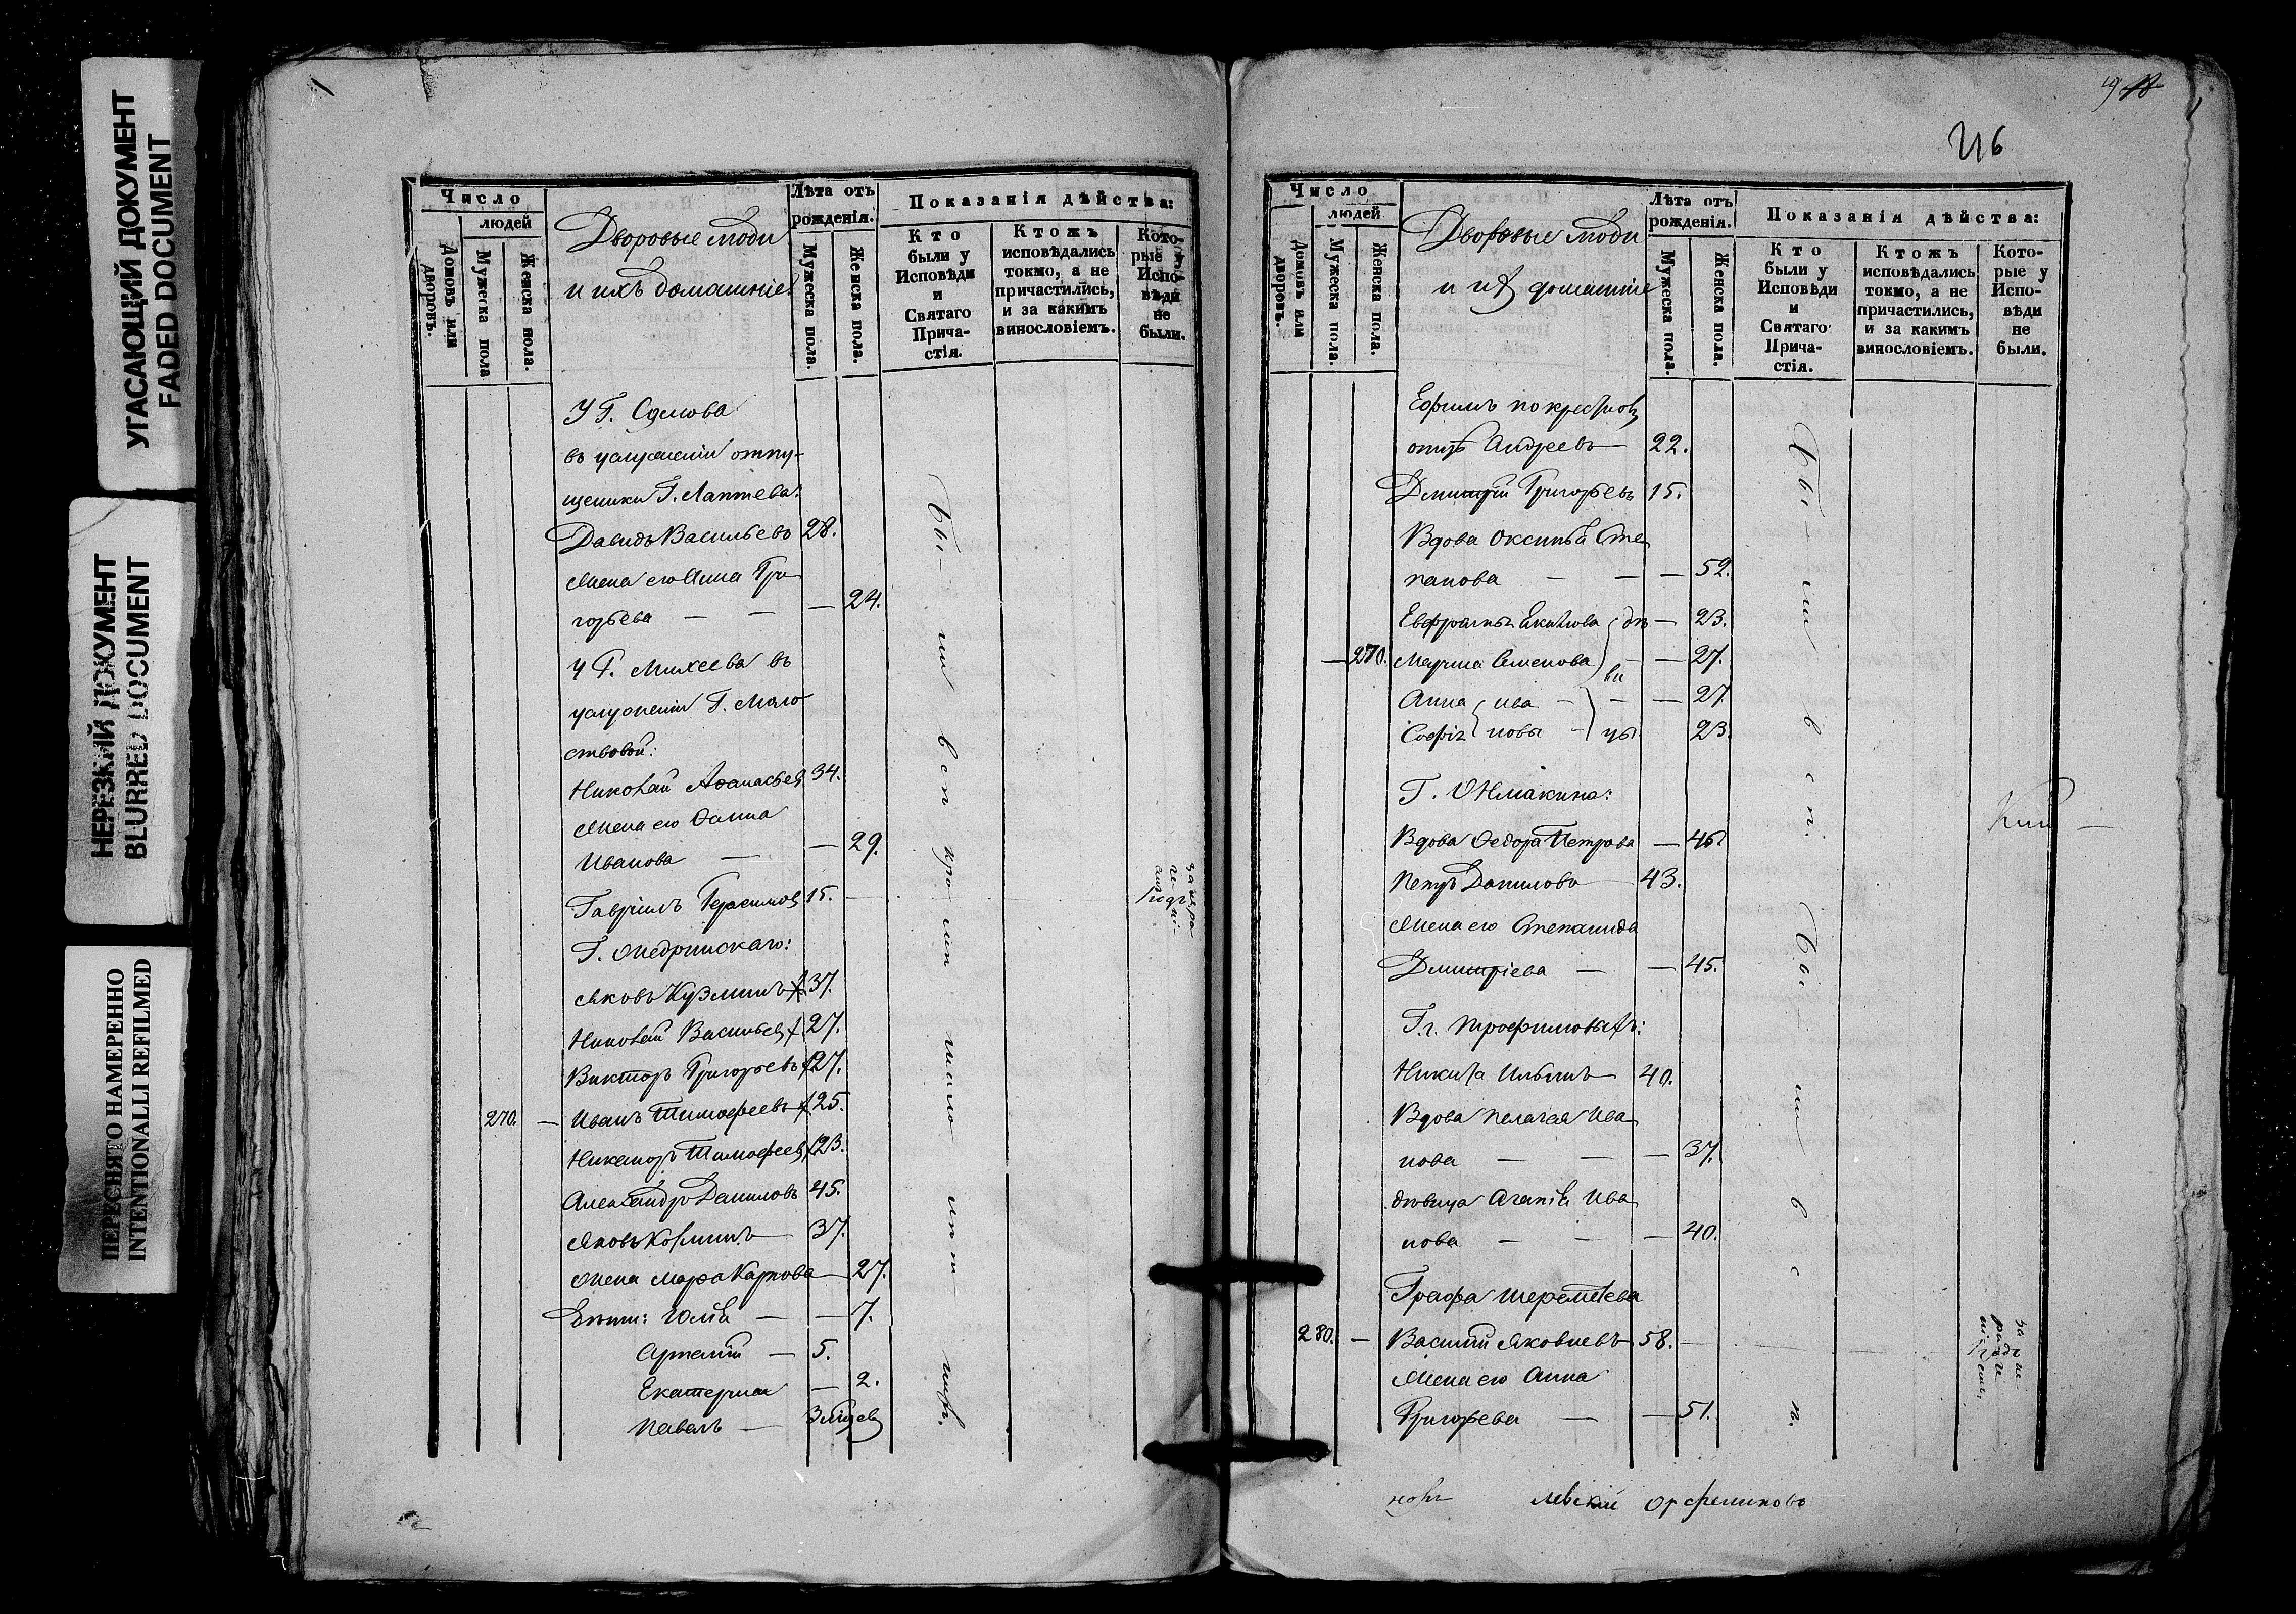 УГАСАЮЩИЙ ДОКУМЕНТ
FADED DOCUMENT
НЕРЕЗКИЙ ДОКУМЕНТ
BLURRED DOCUMENT
ПЕРЕСНЯТО НАМЕРЕННО
INTENTIONALLI REFILMED
Число
людей
Домовъ или дворовъ.
Мужеска пола
Женска пола.
Дворовые люди
и ихъ домашніе.
Лѣта отъ
рожденія.
Мужеска пола.
Женска пола.
Показанія дѣйства:
Кто
были у
Исповѣди
и
Святаго
Прича-
стія.
Ктожъ
исповѣдались
токмо, а не
причастились,
и за какимъ
винословіемъ.
Кото-
рые у
Испо-
вѣди
не
были.
У Г.
въ услуженіи отпу-
щеники Г. Лаптева:
Давидъ Васильевъ 28.
Жена его Анна Гри
горьева — — — 24.
У Г. Михеева въ
услуженіи Г.
ствовой:
Николай Аѳанасьев 34.
Жена его Ѳаина
Иванова — — 29.
Гавріилъ Герасимов 15.
Г.
Яковъ Кузминъ 37.
Николай Васильев 27.
Викторъ Григорьевъ 27.
270. — Иванъ Тимофеевъ 25.
Никаноръ Тимофеев 23.
Александръ Даниловъ 45.
Яковъ 37.
Жена Марѳа Карпова — 27.
Дѣти: Юлія — — 7.
— 5.
Екатерина — 2.
Павелъ —
бы- ли всп кро- мѣ
216
Число
людей
Домовъ или дворовъ.
Мужеска пола.
Женска пола.
Дворовые люди
и их домашніе
Лѣта отъ
рожденія.
Мужеска пола.
Женска пола.
Показанія дѣйства:
Кто
были у
Исповѣди
и
Святаго
Прича-
стія.
Ктожъ
исповѣдались
токмо, а не
причастились,
и за какимъ
винословіемъ.
Кото-
рые у
Испо-
вѣди
не
были.
Ефимъ по крестном
отцѣ Андреевъ — 22.
Дмитрій Григорьевъ 15.
Вдова Оксинья Сте
панова — — — 52.
Акимова дѣ — 23.
— 270. Семенова — вы — 27.
Анна ива — — — 27.
Софія новы — цы. 23.
Г.
Вдова Ѳедора Петрова — 46
Петръ Даниловъ — 43.
Жена его Степанида
Дмитріева — — 45.
Г.г. Трофимовыхъ:
Никита Ильинъ — 40.
Вдова Пелагея Ива
нова — — — 37.
дѣвица Агапія Ива
нова — — — 40.
Графа Шереметева
280. — Василій Яковлевъ 58.
Жена его Анна
Григорьева — — 51.
бы- ли в с п.
бы- ли в с п.